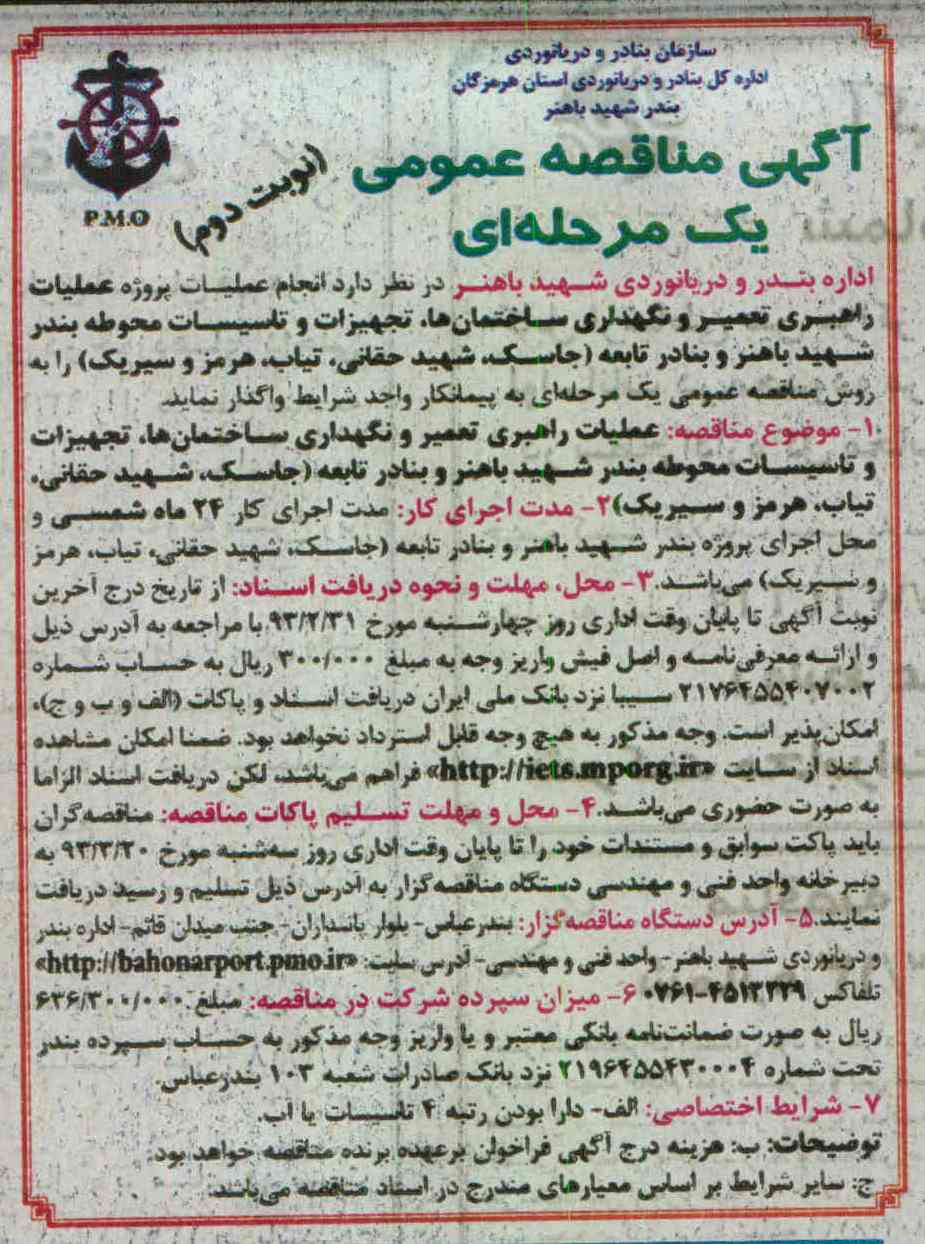 سازمان بنادر و دریانوردی
اداره کل بنادر و دریانوردی استان هرمزگان
بندر شهید باهنر
P.M.O
آگهی مناقصه عمومی
یک مرحله‌ای
(نوبت دوم)
اداره بندر و دریانوردی شهید باهنر در نظر دارد انجام عملیات پروژه عملیات
راهبری تعمیر و نگهداری ساختمان‌ها، تجهیزات و تاسیسات محوطه بندر
شهید باهنر و بنادر تابعه (جاسک، شهید حقانی، تیاب، هرمز و سیریک) را به
روش مناقصه عمومی یک مرحله‌ای به پیمانکار واجد شرایط واگذار نماید.
۱- موضوع مناقصه: عملیات راهبری تعمیر و نگهداری ساختمان‌ها، تجهیزات
و تاسیسات محوطه بندر شهید باهنر و بنادر تابعه (جاسک، شهید حقانی،
تیاب، هرمز و سیریک) ۲- مدت اجرای کار: مدت اجرای کار ۲۴ ماه شمسی و
محل اجرای پروژه بندر شهید باهنر و بنادر تابعه (جاسک، شهید حقانی، تیاب، هرمز
و سیریک) می‌باشد. ۳- محل، مهلت و نحوه دریافت اسناد: از تاریخ درج آخرین
نوبت آگهی تا پایان وقت اداری روز چهارشنبه مورخ ۹۳/۲/۳۱ با مراجعه به آدرس ذیل
و ارائه معرفی‌نامه و اصل فیش واریز وجه به مبلغ ۳۰۰/۰۰۰ ریال به حساب شماره
۲۱۷۶۴۵۵۴۰۷۰۰۲ سیبا نزد بانک ملی ایران دریافت اسناد و پاکات (الف و ب و ج)،
امکان‌پذیر است. وجه مذکور به هیچ وجه قابل استرداد نخواهد بود. ضمنا امکان مشاهده
اسناد از سایت «http://iets.mporg.ir» فراهم می‌باشد، لکن دریافت اسناد الزاما
به صورت حضوری می‌باشد. ۴- محل و مهلت تسلیم پاکات مناقصه: مناقصه‌گران
باید پاکت سوابق و مستندات خود را تا پایان وقت اداری روز سه‌شنبه مورخ ۹۳/۳/۲۰ به
دبیرخانه واحد فنی و مهندسی دستگاه مناقصه‌گزار به آدرس ذیل تسلیم و رسید دریافت
نمایند. ۵- آدرس دستگاه مناقصه‌گزار: بندرعباس- بلوار پاسداران- جنب میدان قائم- اداره بندر
و دریانوردی شهید باهنر- واحد فنی و مهندسی- آدرس سایت: «http://bahonarport.pmo.ir»
تلفاکس ۴۵۱۳۳۲۹-۰۷۶۱ ۶- میزان سپرده شرکت در مناقصه: مبلغ ۶۳۶/۳۰۰/۰۰۰
ریال به صورت ضمانت‌نامه بانکی معتبر و یا واریز وجه مذکور به حساب سپرده بندر
تحت شماره ۲۱۹۶۴۵۵۴۳۰۰۰۴ نزد بانک صادرات شعبه ۱۰۳ بندرعباس.
۷- شرایط اختصاصی: الف- دارا بودن رتبه ۴ تاسیسات یا آب.
توضیحات: ب: هزینه درج آگهی فراخوان برعهده برنده مناقصه خواهد بود.
ج: سایر شرایط بر اساس معیارهای مندرج در اسناد مناقصه می‌باشد.